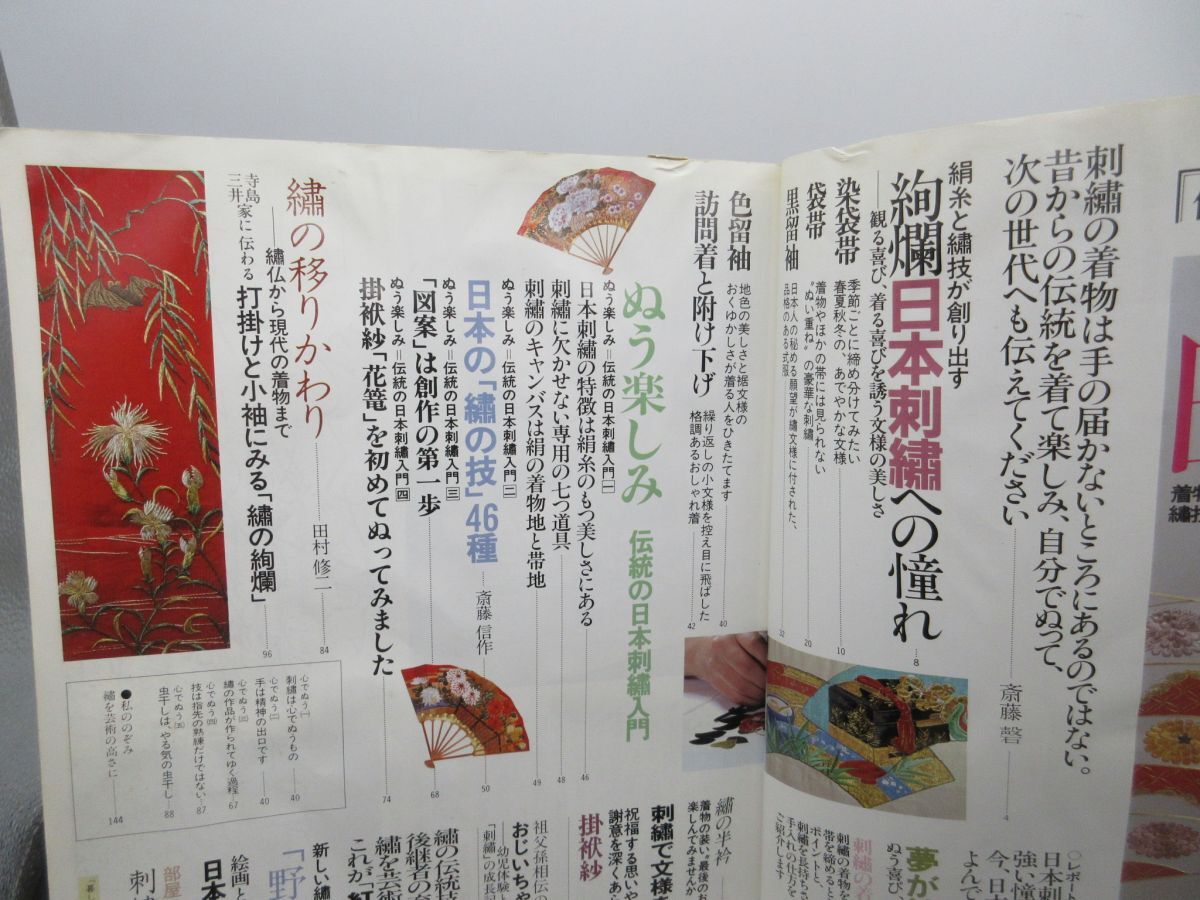 刺繡の着物は手の届かないところにあるのではない。
昔からの伝統を着て楽しみ、自分でぬって、
次の世代へも伝えてください
斎藤 磬
4
絹糸と繡技が創り出す
絢爛日本刺繡への憧れ
8
―観る喜び、着る喜びを誘う文様の美しさ
染袋帯
季節ごとに締め分けてみたい
春夏秋冬の、あでやかな文様
10
袋帯
着物やほかの帯には見られない
“ぬい重ね”の豪華な刺繡
20
黒留袖
日本人の秘める願望が繡文様に付された、
品格のある式服
32
色留袖
地色の美しさと裾文様の
おくゆかしさが着る人をひきたてます
40
訪問着と附け下げ
繰り返しの小文様を控え目に飛ばした
格調あるおしゃれ着
42
ぬう楽しみ 伝統の日本刺繡入門
ぬう楽しみ=伝統の日本刺繡入門[一]
日本刺繡の特徴は絹糸のもつ美しさにある
46
刺繡に欠かせない専用の七つ道具
48
刺繡のキャンバスは絹の着物地と帯地
49
ぬう楽しみ=伝統の日本刺繡入門[二]
日本の「繡の技」46種
斎藤 信作
50
ぬう楽しみ=伝統の日本刺繡入門[三]
「図案」は創作の第一歩
68
ぬう楽しみ=伝統の日本刺繡入門[四]
掛袱紗「花篭」を初めてぬってみました
74
繡の移りかわり
田村 修二
84
―繡仏から現代の着物まで
寺島
三井
家に伝わる 打掛けと小袖にみる「繡の絢爛」
96
心でぬう[一]
刺繡は心でぬうもの
40
心でぬう[二]
手は精神の出口です
40
心でぬう[三]
繡の作品が作られてゆく過程
67
心でぬう[四]
技は指先の熟練だけではない
87
心でぬう[五]
虫干しは、やる気の虫干し
88
●私ののぞみ
繡を芸術の高さに
144
着物
繡技
○レポート
日本刺
強い憧
今、日
よんで
夢が
ぬう喜び、
刺繡の着
刺繡の着物を
帯を締めると
ポイントと、
刺繡を長持ちさ
手入れの仕方を
ご紹介します
繡の半衿
着物の装い“最後のお
楽しんでみませんか
刺繡で文様を
祝福する思いや
謝意を深くあら
掛袱紗
祖父孫相伝の
おじいちゃ
―幼児体験と
「刺繡」の成長記
繡の伝統技
後継者の育
繡を芸術
これが「紅
「野
新しい繡
絵画と
日本
部屋
刺繡